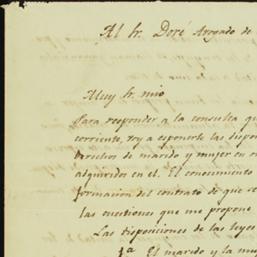 Al Sr. Doré Avogado de
Muy Sr. mio
Para responder a la consulta qu
corriente, voy a esponerle las dispos
derechos de marido y mujer en
adquiridos en el. El conocimiento
formacion del contrato de que se
las cuestiones que me propone
Las disposiciones de las leyes
1ª El marido y la mu